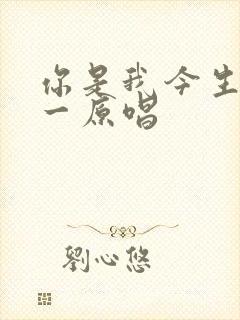 你是我今生
一原唱
劉心悠